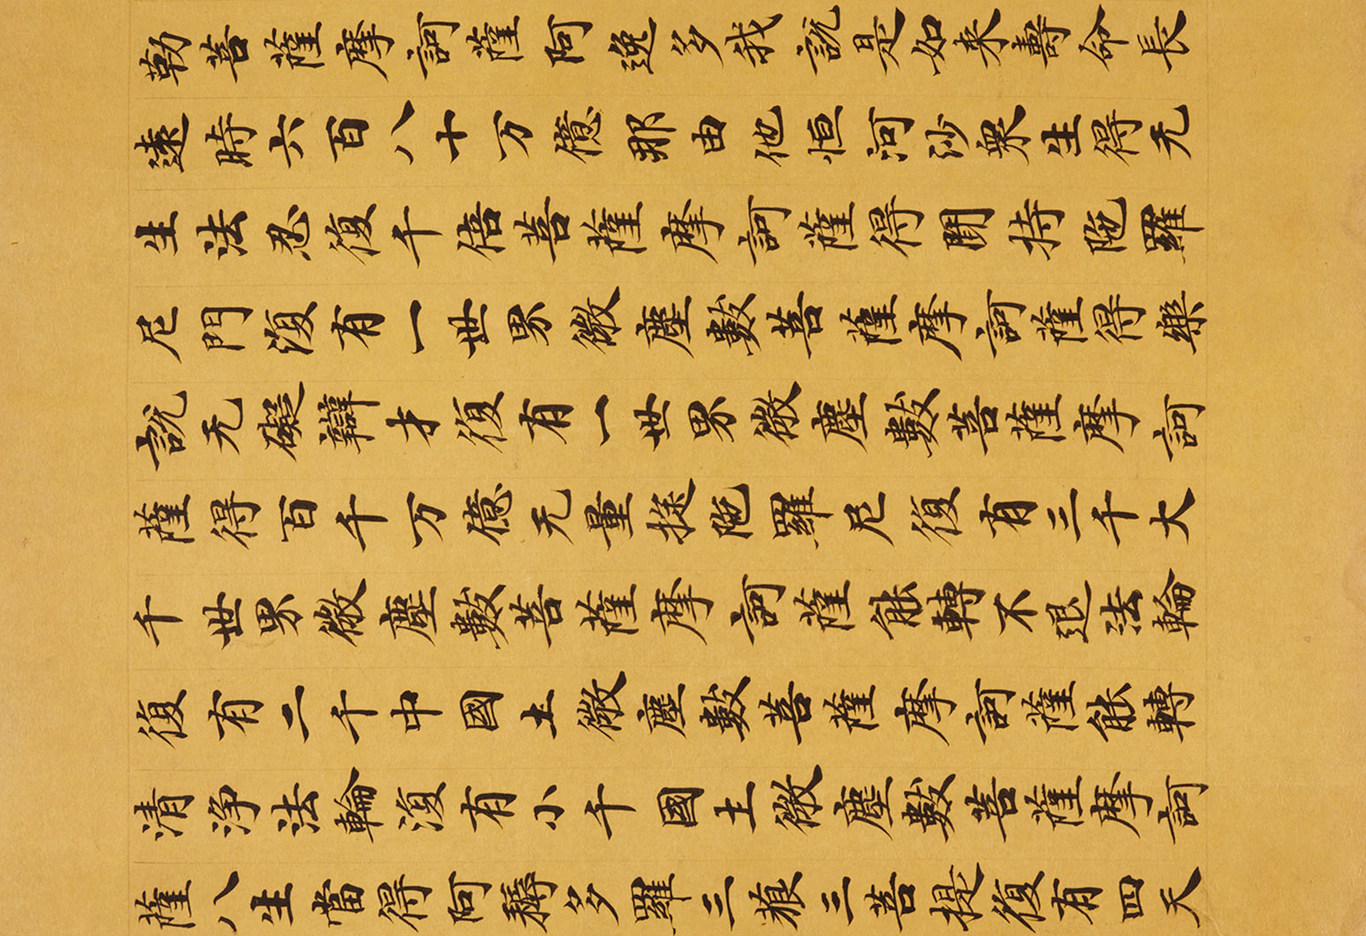 勒菩薩摩訶薩阿逸多我說是如来壽命長
遠時六百八十万億那由他恒河沙衆生得无
生法忍復千倍菩薩摩訶薩得聞持陁羅
尼門復有一世界微塵數菩薩摩訶薩得樂
說无礙辯才復有一世界微塵數菩薩摩訶
薩得百千万億无量旋陁羅尼復有三千大
千世界微塵數菩薩摩訶薩能轉不退法輪
復有二千中國土微塵數菩薩摩訶薩能轉
清淨法輪復有小千國土微塵數菩薩摩訶
薩八生當得阿耨多羅三藐三菩提復有四天